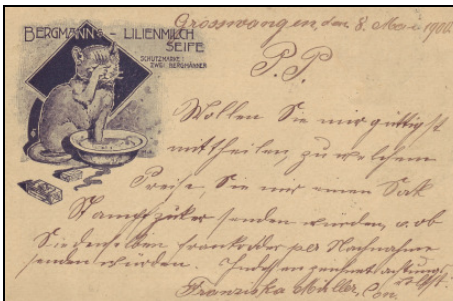 BERGMANN'S - LILIENMILCH
SEIFE
SCHUTZMARKE:
ZWEI BERGMÄNNER
Grosswangen, den 8. Mai 1900
P. P.
Wollen Sie mir gütigst
mittheilen, zu welchem
Preise, Sie mir einen Sak
Stampfzuker senden würden, u. ob
Sie denselben franko oder per Nachnahme
senden würden. Indessen zeichnet achtungs-
vollst.
Franziska Müller, Con.